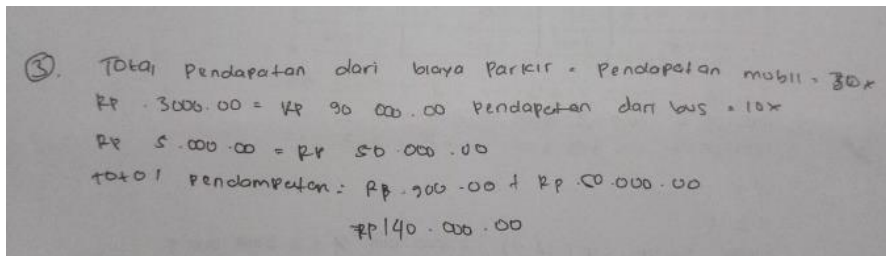 ③. Total Pendapatan dari biaya Parkir = Pendapatan mobil = 30x
RP .3000.00 = RP 90 000.00 Pendapatan dari bus = 10x
RP 5.000.00 = RP 50.000.00
total Pendampatan = RP.900.00 + RP.50.000.00
RP 140.000.00